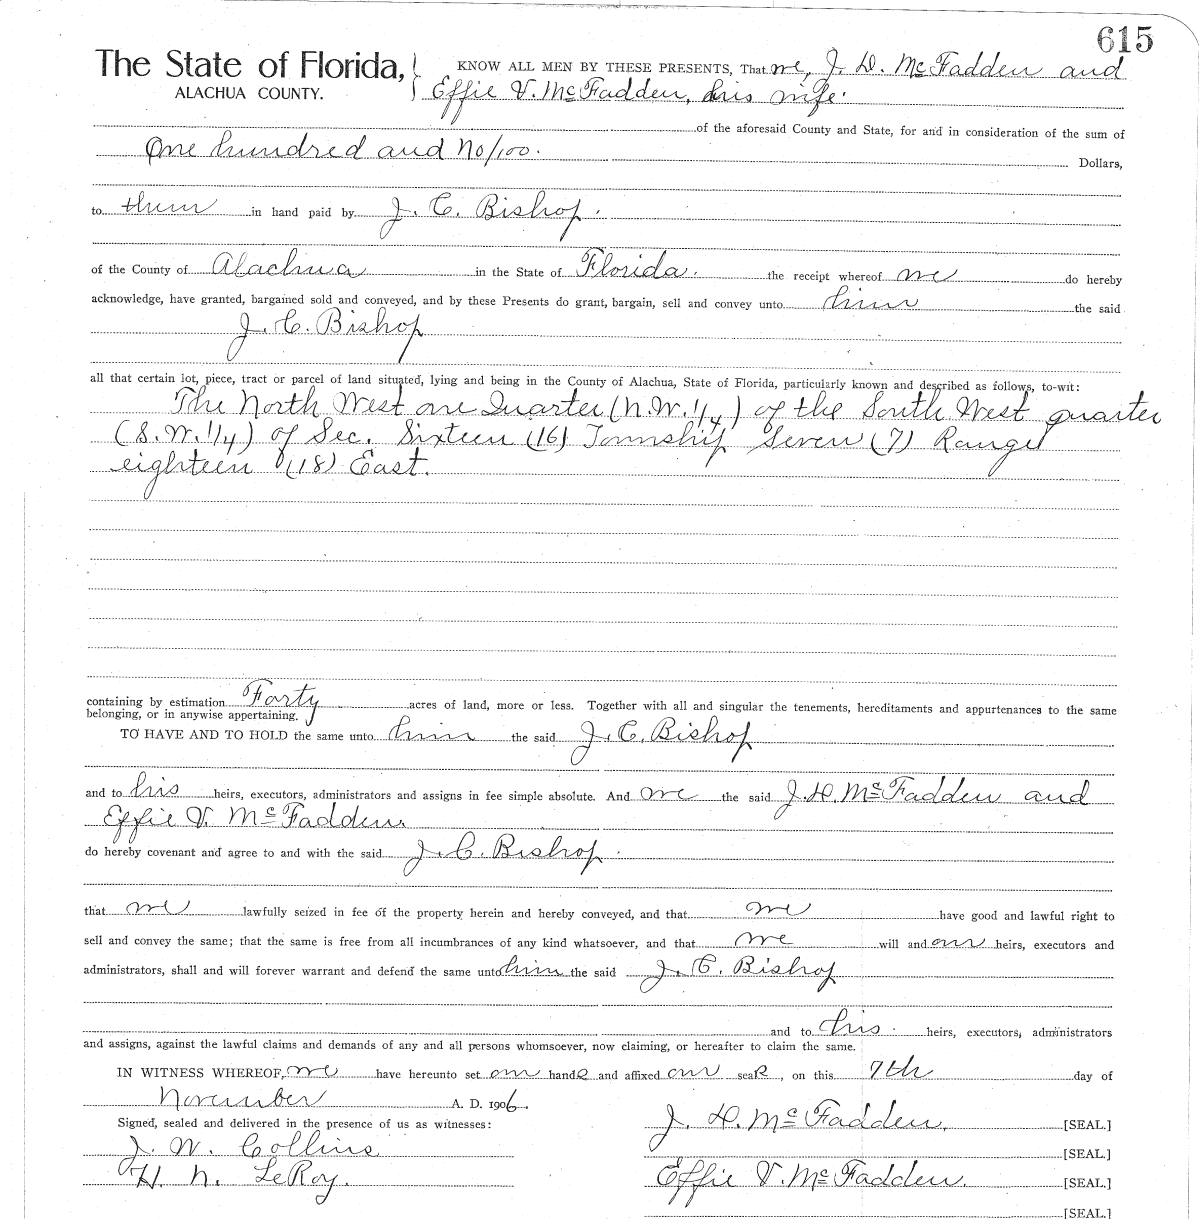 615
The State of Florida, KNOW ALL MEN BY THESE PRESENTS, That we, J. D. McFadden and
ALACHUA COUNTY. Effie V. McFadden, his wife.
of the aforesaid County and State, for and in consideration of the sum of
One hundred and no/100. Dollars,
to them in hand paid by J. C. Bishop.
of the County of Alachua in the State of Florida. the receipt whereof we do hereby
acknowledge, have granted, bargained sold and conveyed, and by these Presents do grant, bargain, sell and convey unto him the said
J. C. Bishop
all that certain lot, piece, tract or parcel of land situated, lying and being in the County of Alachua, State of Florida, particularly known and described as follows, to-wit:
The North West one Quarter (N.W. 1/4) of the South West quarter
(S.W. 1/4) of Sec. Sixteen (16) Township Seven (7) Range
eighteen (18) East.
containing by estimation Forty acres of land, more or less. Together with all and singular the tenements, hereditaments and appurtenances to the same
belonging, or in anywise appertaining.
TO HAVE AND TO HOLD the same unto him the said J. C. Bishop
and to his heirs, executors, administrators and assigns in fee simple absolute. And we the said J. D. McFadden and
Effie V. McFadden,
do hereby covenant and agree to and with the said J. C. Bishop.
that we lawfully seized in fee of the property herein and hereby conveyed, and that we have good and lawful right to
sell and convey the same; that the same is free from all incumbrances of any kind whatsoever, and that we will and our heirs, executors and
administrators, shall and will forever warrant and defend the same unto him the said J. C. Bishop
and to his heirs, executors, administrators
and assigns, against the lawful claims and demands of any and all persons whomsoever, now claiming, or hereafter to claim the same.
IN WITNESS WHEREOF, we have hereunto set our hands and affixed our seals, on this 7th day of
November A. D. 1906.
Signed, sealed and delivered in the presence of us as witnesses: J. D. McFadden. [SEAL.]
J. W. Collins [SEAL.]
H. N. LeRoy. Effie V. McFadden. [SEAL.]
[SEAL.]